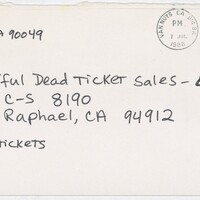 A 90049
VAN NUYS CA
PM
1986
ful Dead Ticket Sales –
C-S 8190
Raphael, CA 94912
Tickets